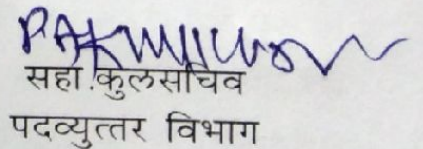 सहा.कुलसचिव
पदव्युत्तर विभाग